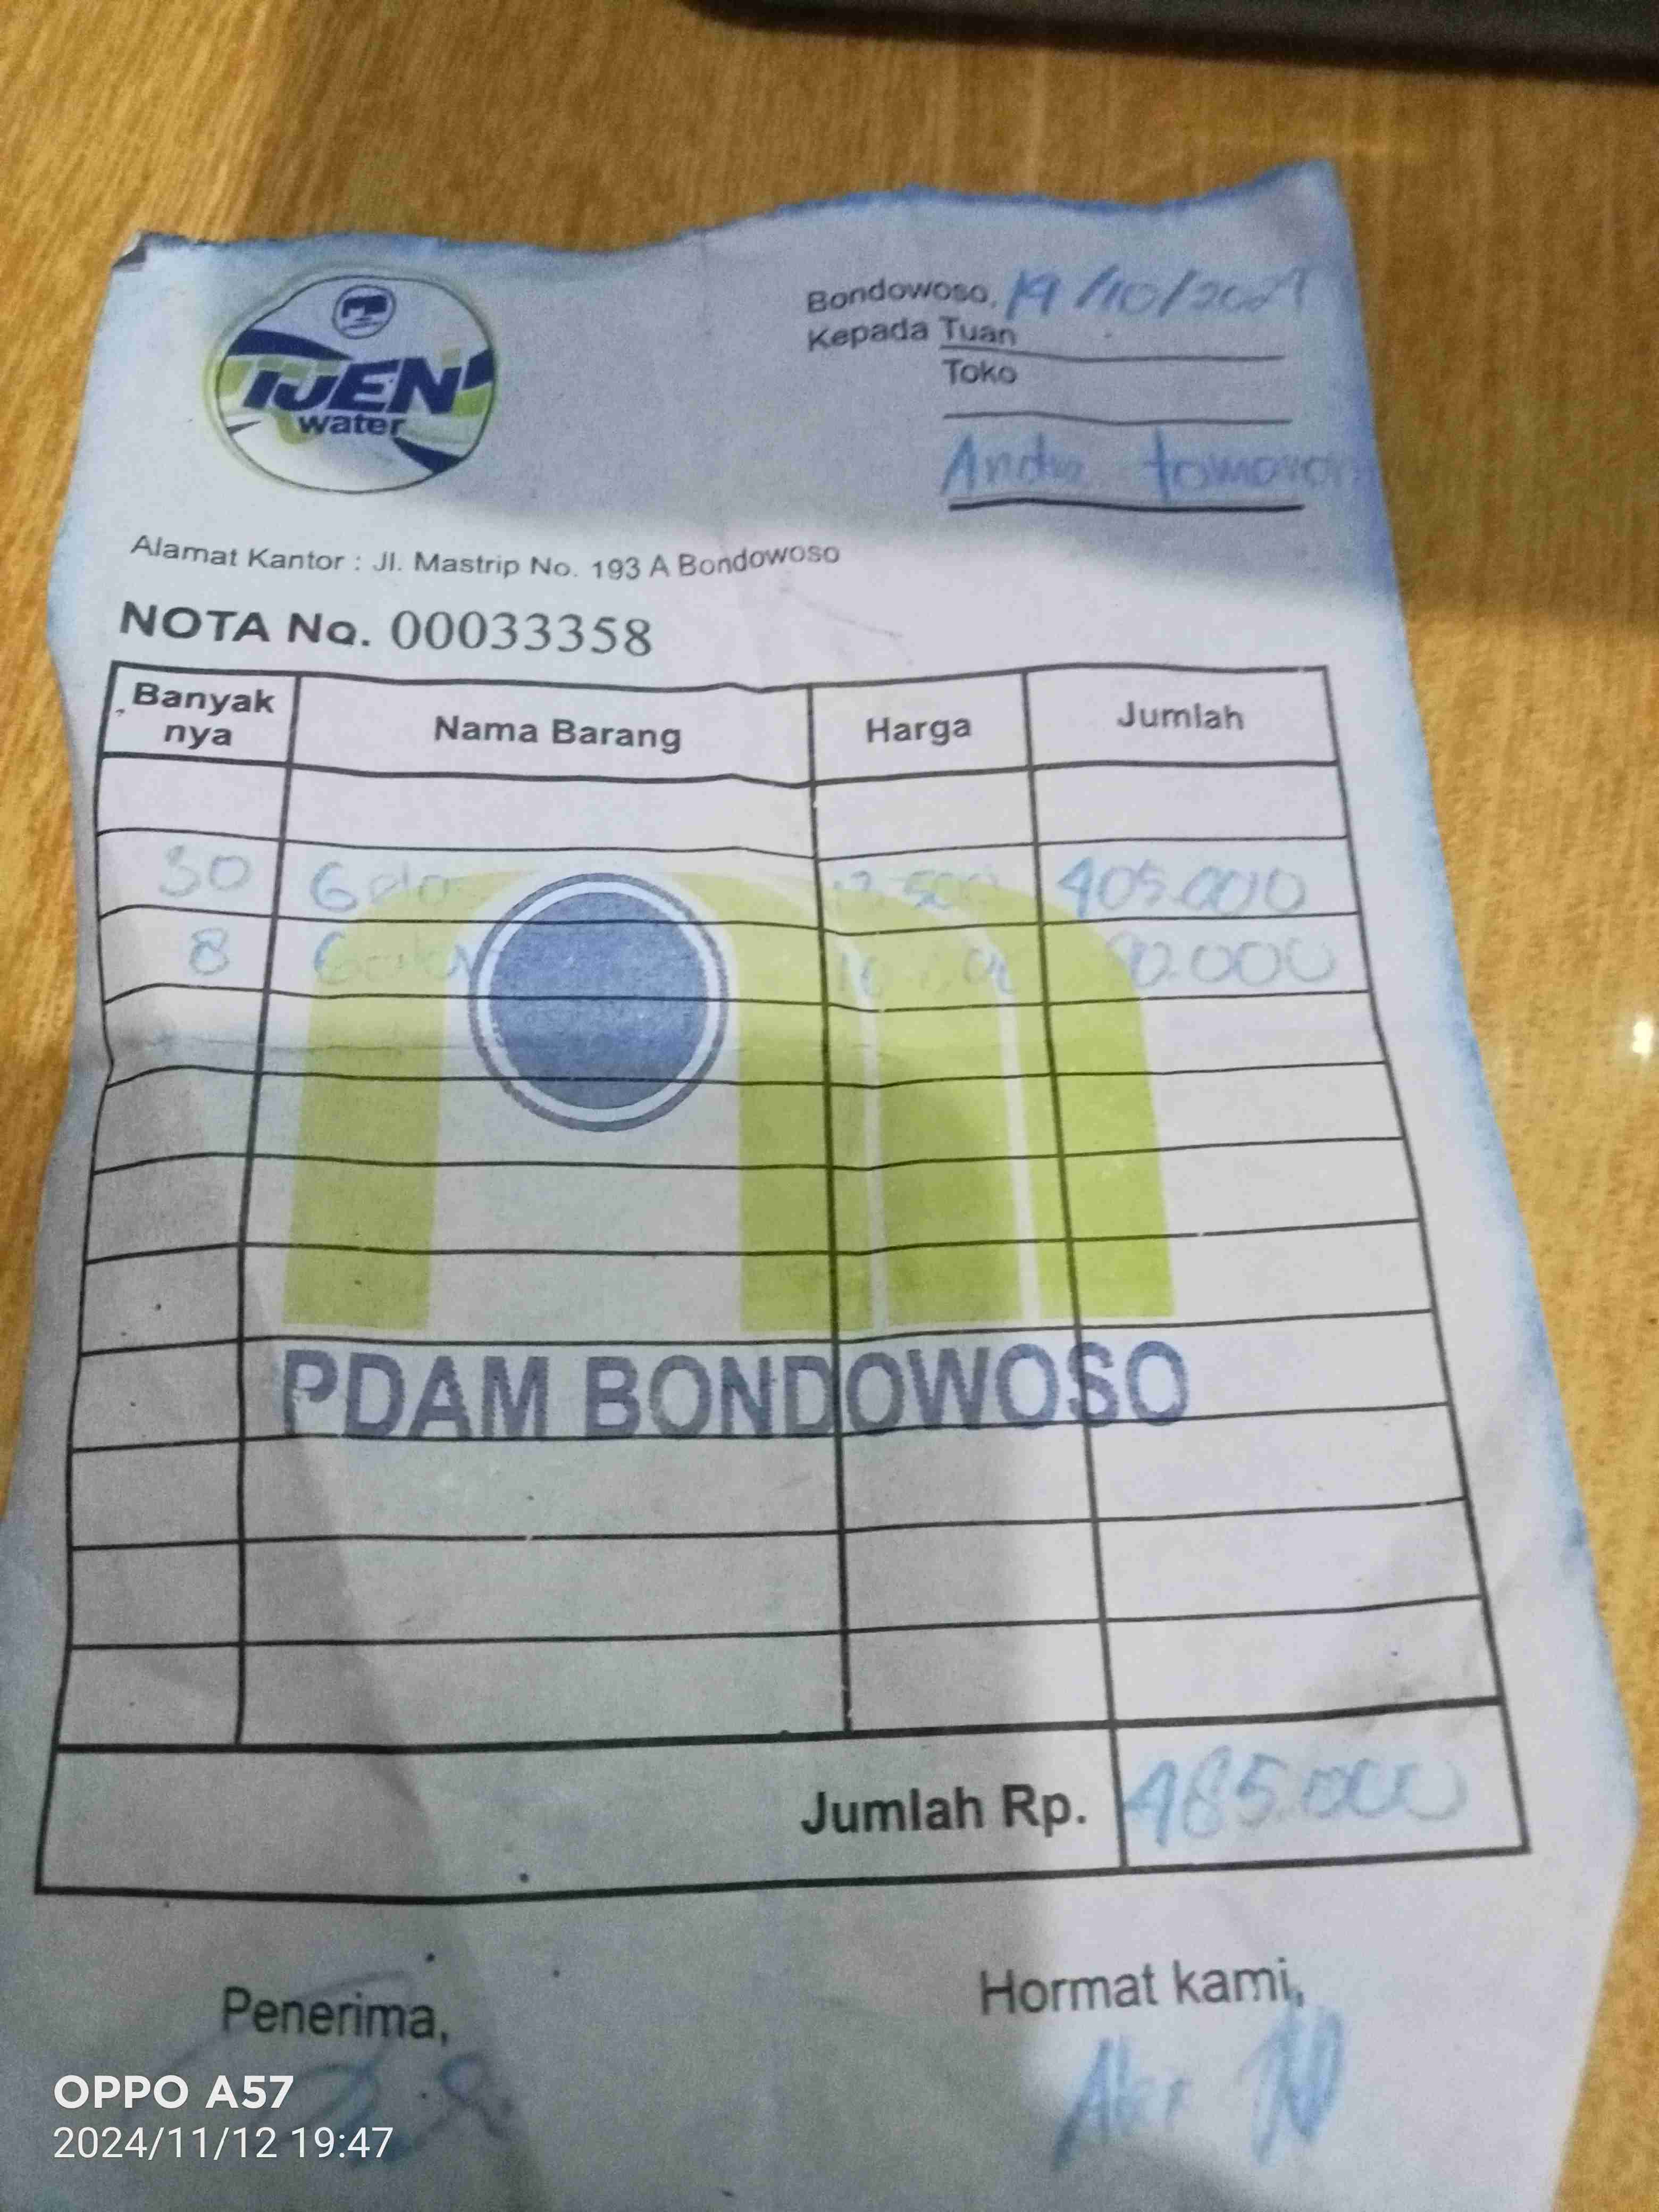 IJEN
water
Bondowoso, 19/10/2024
Kepada Tuan
Toko
Andre
Alamat Kantor : Jl. Mastrip No. 193 A Bondowoso
NOTA No. 00033358
Banyak nya Nama Barang Harga Jumlah
30 13.500 405.000
8
PDAM BONDOWOSO
Jumlah Rp. 485.000
Penerima, Hormat kami,
OPPO A57
2024/11/12 19:47